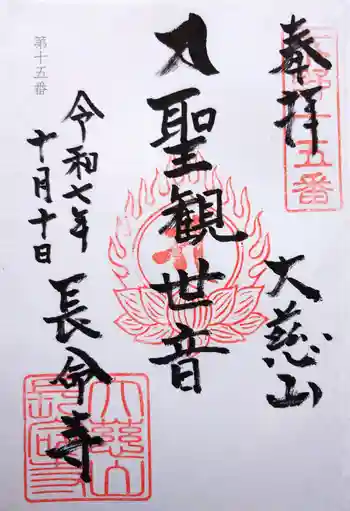 奉拝
大慈山
聖観世音
令和七年
十月十日
長命寺
第十五番
十五番